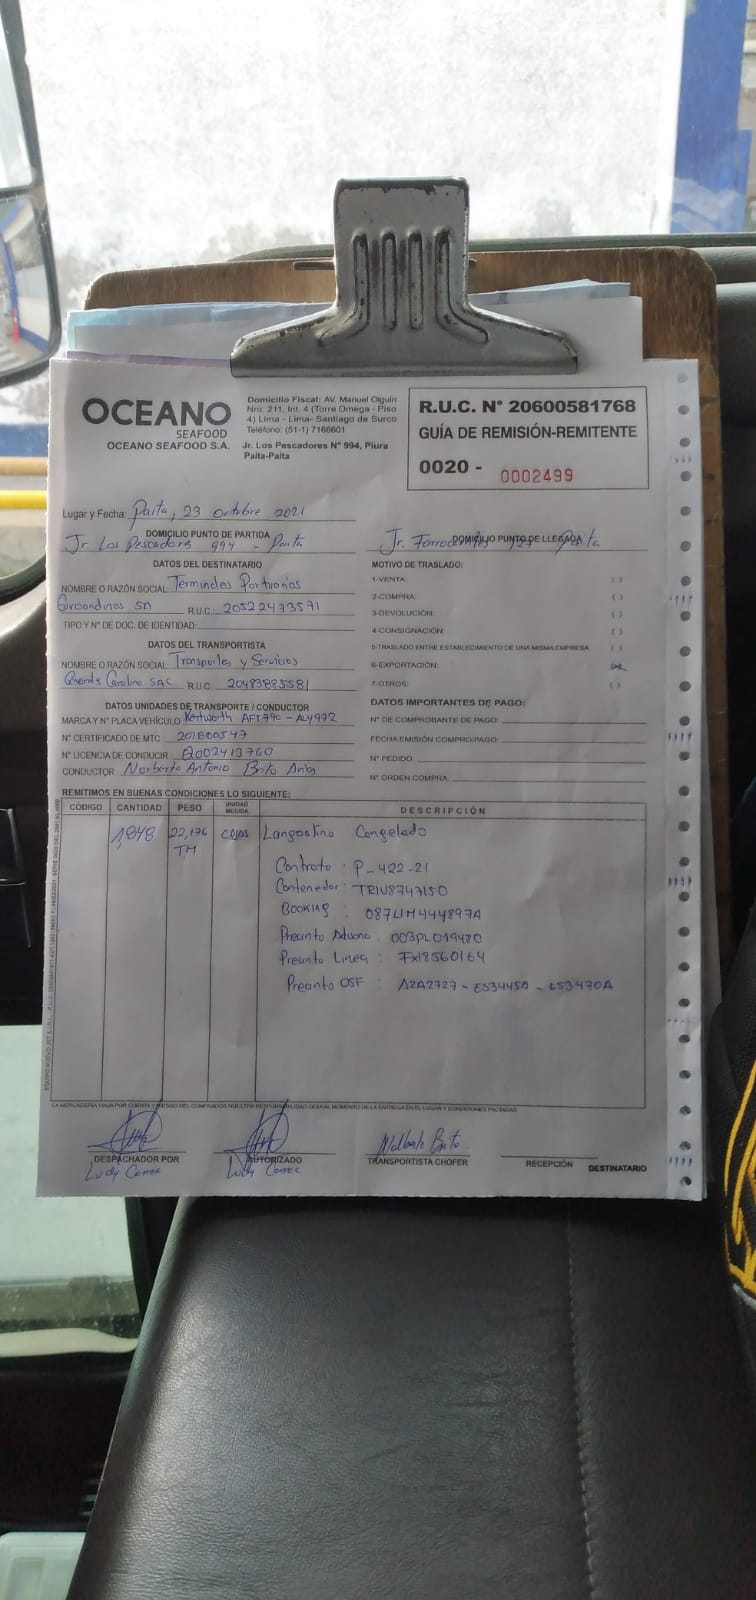 OCEANO
SEAFOOD
OCEANO SEAFOOD S.A.
Domicilio Fiscal: AV. Manuel Olguin
Nro. 211, Int. 4 (Torre Omega - Piso
4) Lima - Lima- Santiago de Surco
Teléfono: (51-1) 7166601
Jr. Los Pescadores N° 994, Piura
Paita-Paita
R.U.C. N° 20600581768
GUÍA DE REMISIÓN-REMITENTE
0020 - 0002499
Lugar y Fecha: Paita, 23 octubre 2021
DOMICILIO PUNTO DE PARTIDA
Jr Los Pescadores 994 - Paita
DOMICILIO PUNTO DE LLEGADA
Jr. 127 Paita
DATOS DEL DESTINATARIO
NOMBRE O RAZÓN SOCIAL Terminales Portuarios
SA R.U.C. 20522473571
TIPO Y N° DE DOC. DE IDENTIDAD:
DATOS DEL TRANSPORTISTA
NOMBRE O RAZÓN SOCIAL Transportes y Servicios
Carolina SAC R.U.C. 20483885581
DATOS UNIDADES DE TRANSPORTE / CONDUCTOR
MARCA Y N° PLACA VEHÍCULO Kenworth AFT790 - ALY972
N° CERTIFICADO DE MTC 201800547
N° LICENCIA DE CONDUCIR Q002413760
CONDUCTOR Norberto Antonio Brito
MOTIVO DE TRASLADO:
1-VENTA: ( )
2-COMPRA: ( )
3-DEVOLUCIÓN: ( )
4-CONSIGNACIÓN: ( )
5-TRASLADO ENTRE ESTABLECIMIENTO DE UNA MISMA EMPRESA ( )
6-EXPORTACIÓN:
7-OTROS: ( )
DATOS IMPORTANTES DE PAGO:
N° DE COMPROBANTE DE PAGO:
FECHA EMISIÓN COMPRO/PAGO:
N° PEDIDO:
N° ORDEN COMPRA:
REMITIMOS EN BUENAS CONDICIONES LO SIGUIENTE:
CÓDIGO CANTIDAD PESO UNIDAD MEDIDA DESCRIPCIÓN
1,848 22,176 TM cajas Langostino Congelado
Contrato : P-422-21
Contenedor : TRIU8747150
BOOKING : 087LIM444897A
Precinto Aduana : 003PL019420
Precinto Linea : FX18560164
Precinto OSF : A2A2727 - E53445A - E53470A
DESPACHADOR POR
Ludy Correa
AUTORIZADO
Ludy Correa
TRANSPORTISTA CHOFER
RECEPCIÓN DESTINATARIO